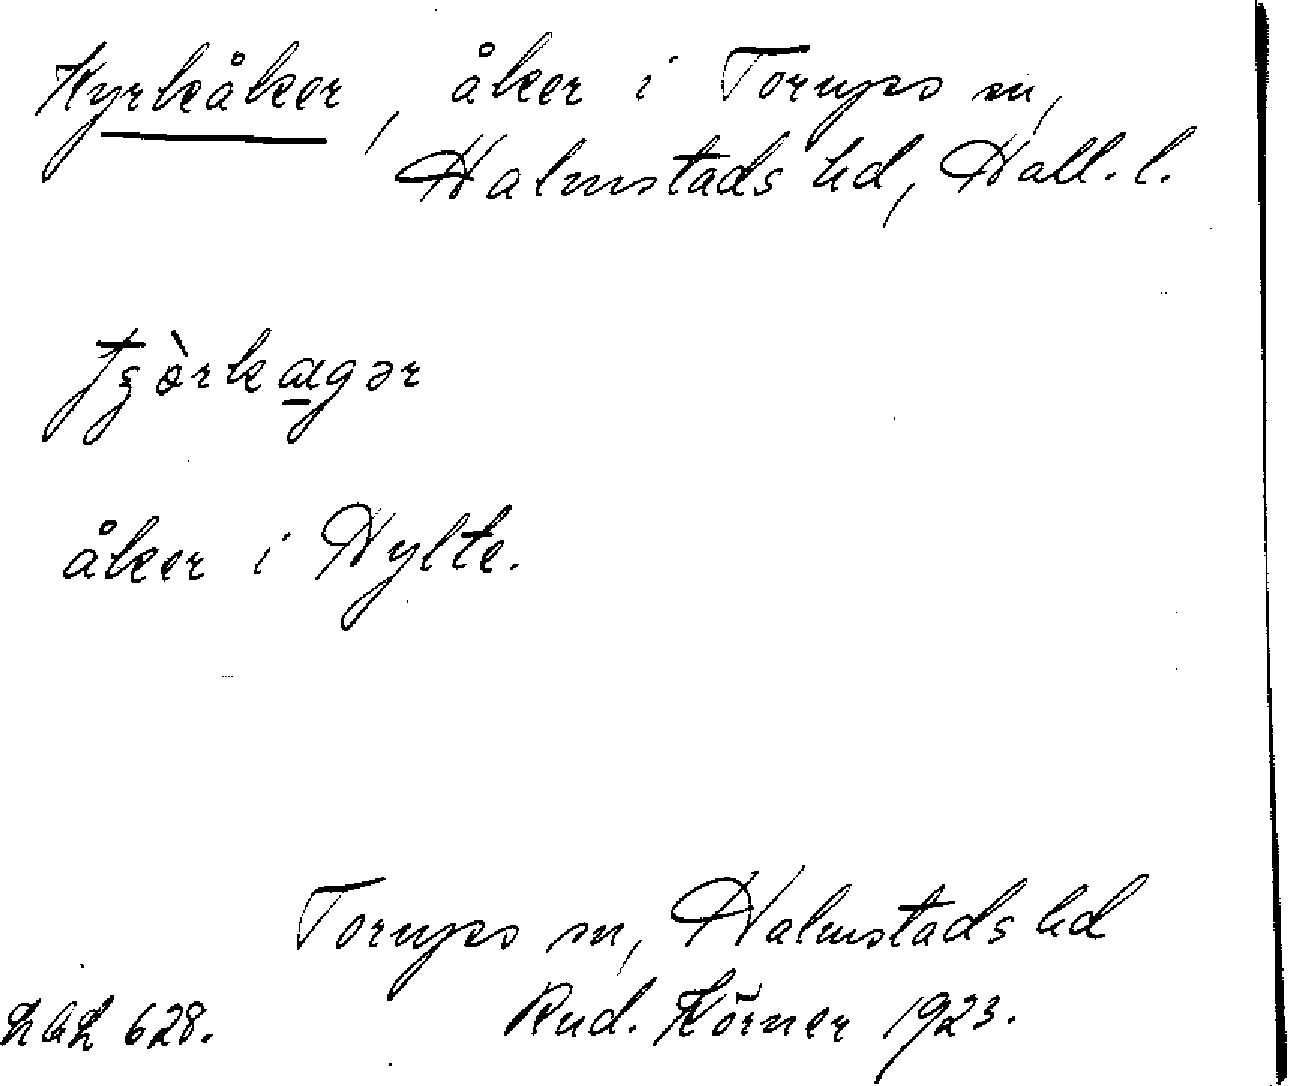 Kyrkåker, åker i Torups sn,
Halmstads hd, Hall. l.
åker i Hylte.
Torups sn, Halmstads hd
Rud. Körner 1923.
628.